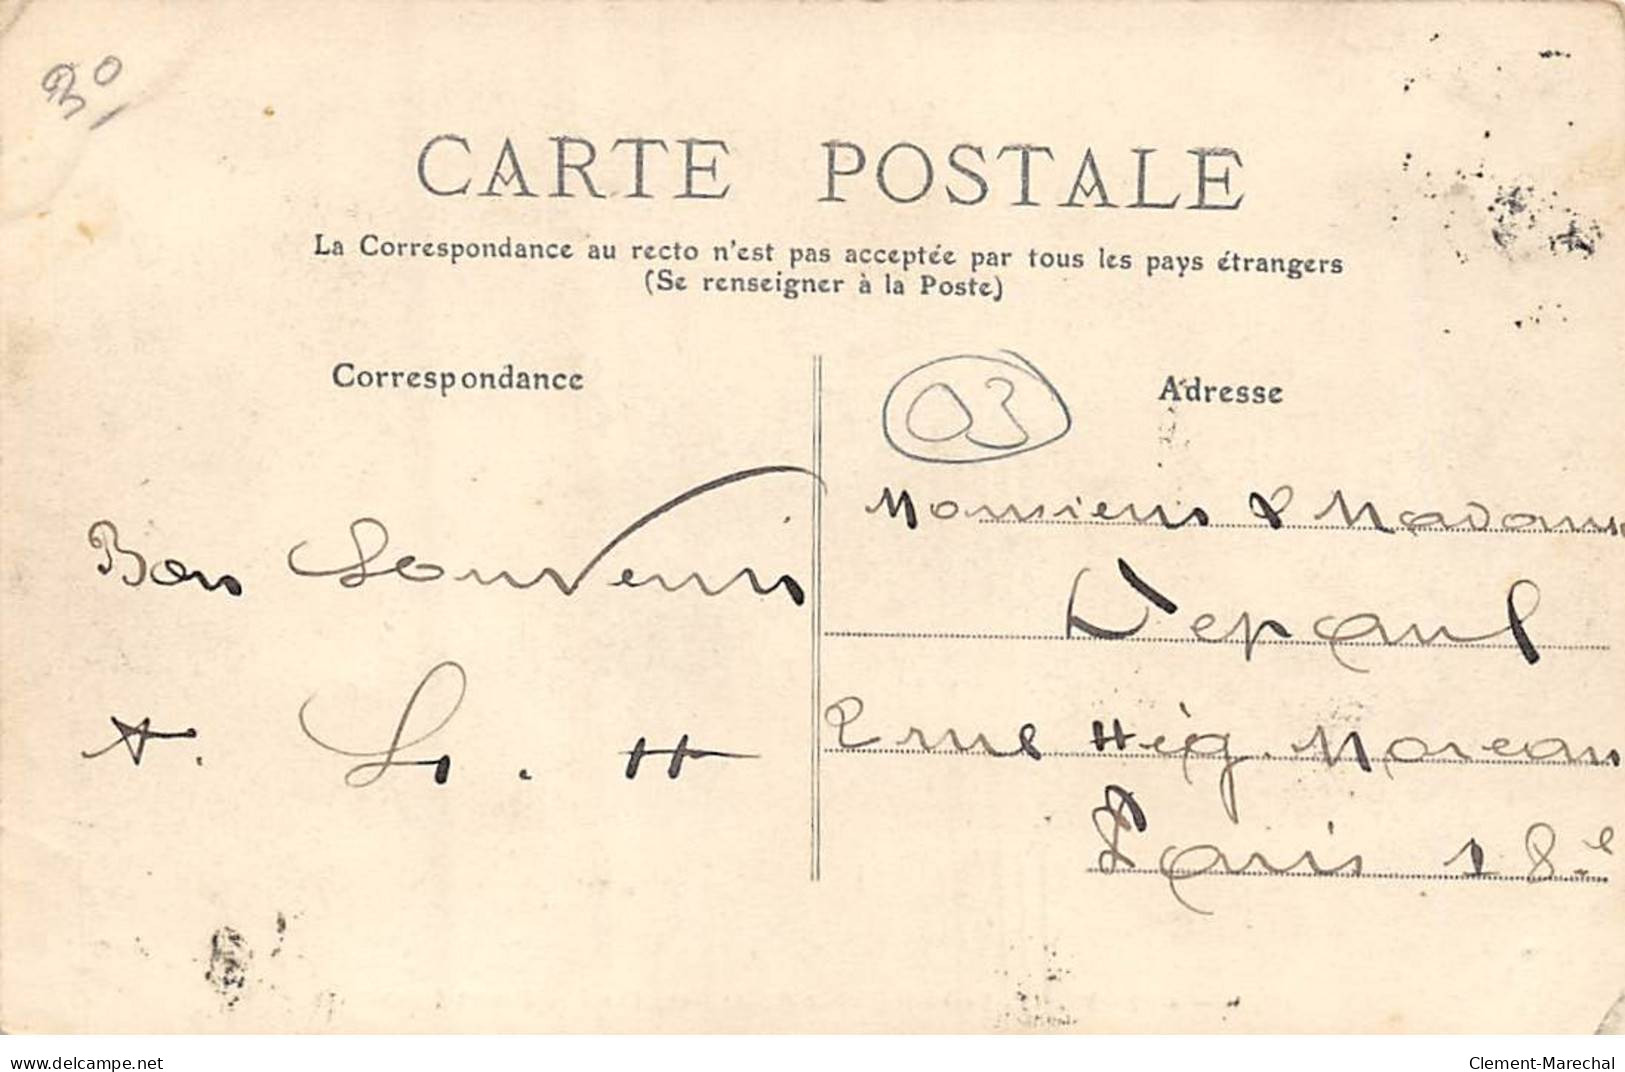 30
CARTE POSTALE
La Correspondance au recto n'est pas acceptée par tous les pays étrangers
(Se renseigner à la Poste)
Correspondance
Bon Souvenir
A. L. H
03
Adresse
Monsieur & Madame
Depaul
2 rue Hég. Moreau
Paris 18.e
www.delcampe.net
Clement-Marechal